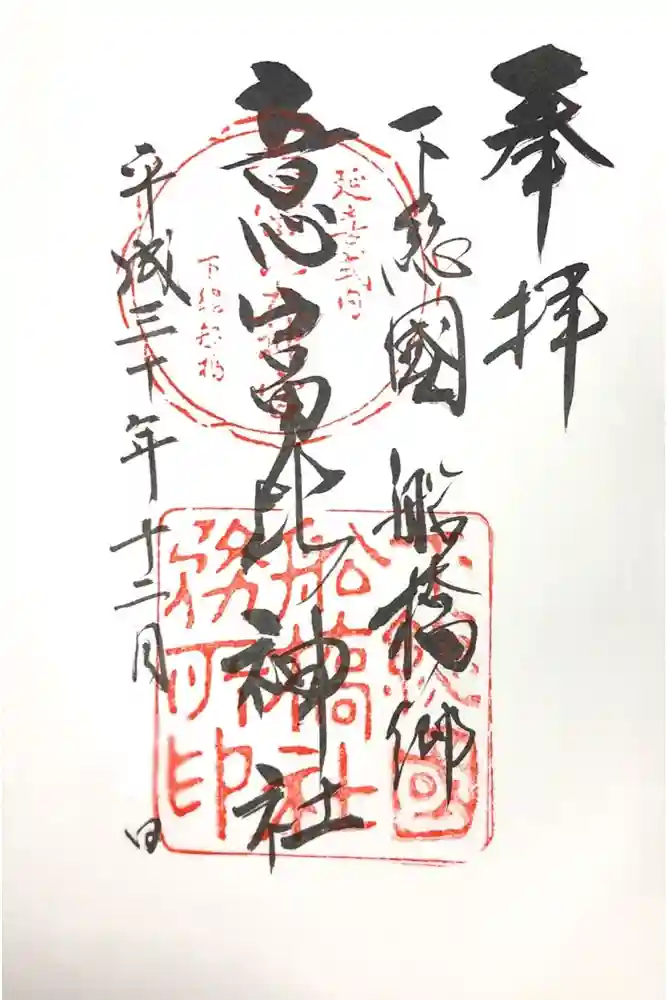 奉拝
下総國 船橋郷
意富比神社
平成三十年十二月 日
延喜式内
下総船橋
下総國
船橋社
務所印